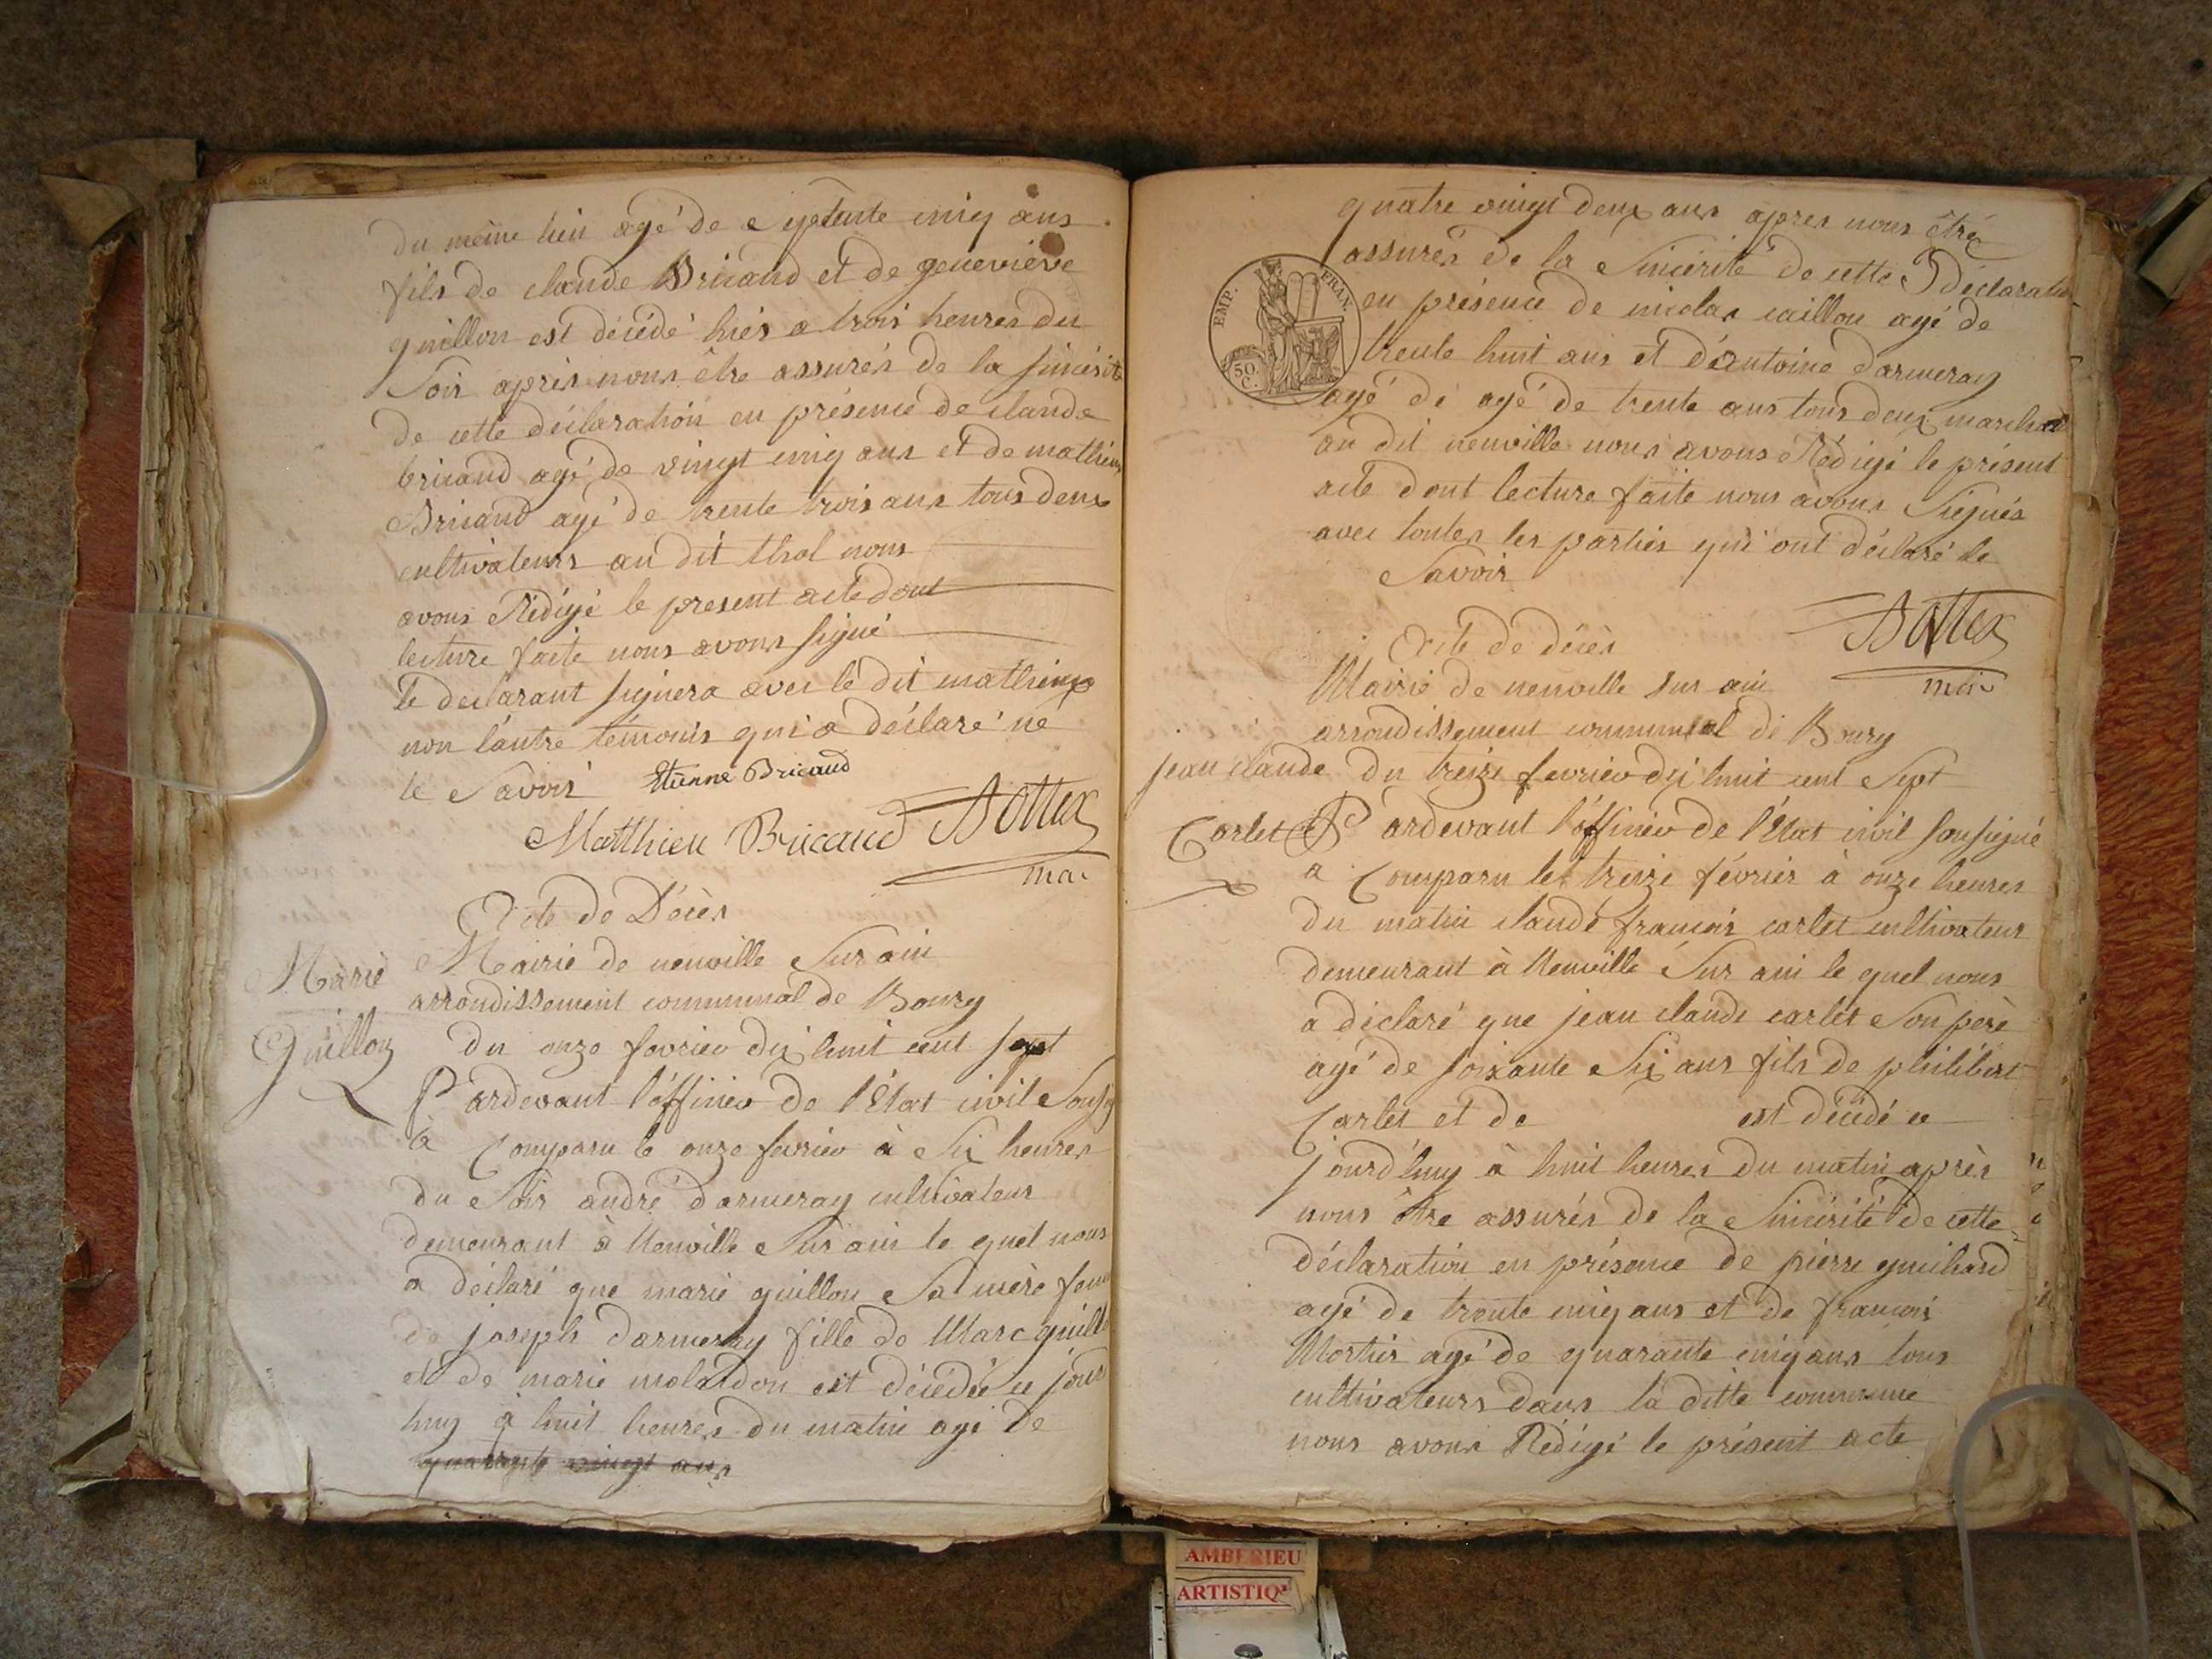 du même lieu agé de Septente cinq ans
fils de claude Bricand et de geneviève
guillon est décédé hiér a trois heures du
Soir après nous être assurés de la sincérité
de cette déclaration en présence de claude
bricand agé de vingt cinq ans et de mathieu
Bricand agé de trente trois ans tous deux
cultivateurs au dit thol nous
avons Rédigé le present acte dont
lecture faite nous avons signé
le declarant signera avec le dit mathieu
non l'autre témoins qui a déclaré ne
le Savoir Etienne Bricaud
Matthieu Bricaud Bottex
mai
Acte de Décès
Marie
Mairie de neuville Sur ain
arrondissement communal de Bourg
Guillon
du onze fevrier dix huit cent sept
Pardevant l'officier de l'Etat civil Sousig
a Comparu le onze fevrier à Six heures
du Soir andré darmeray cultivateur
demeurant à Neuville Sur ain le quel nous
a déclaré que marie guillon Sa mère fem
de joseph darmeray fille de Marc guillo
et de marie molardon est décédée ce jourd
huy à huit heures du matin agé de
quatre vingt ans
quatre vingt deux ans apres nous être
assurés de la Sincérité de cette Déclaration
EMP. FRAN.
50 C.
en présence de nicolas caillon agé de
trente huit ans et d'antoine darmeray
agé de agé de trente ans tous deux marchand
au dit neuville nous avons Rédigé le présent
acte dont lecture faite nous avons Signés
avec toutes les parties qui ont déclaré le
Savoir
Bottex
mai
Acte de décès
Mairie de neuville sur ain
arrondissement communal de Bourg
jean claude
du treize fevrier dix huit cent Sept
Carlet
Pardevant l'officier de l'Etat civil sousigné
a Comparu le treize février à onze heures
du matin claude francois carlet cultivateur
demeurant à Neuville Sur ain le quel nous
a déclaré que jean claude carlet Son père
agé de soixante Six ans fils de philibert
Carlet et de est décédé ce
jourd'huy à huit heures du matin après
nous être assurés de la Sincérité de cette
déclaration en présence de pierre guichard
agé de trente cinq ans et de francois
Mortier agé de quarante cinq ans tous
cultivateurs dans la ditte commune
nous avons Rédigé le présent acte
AMBERIEU
ARTISTIQ